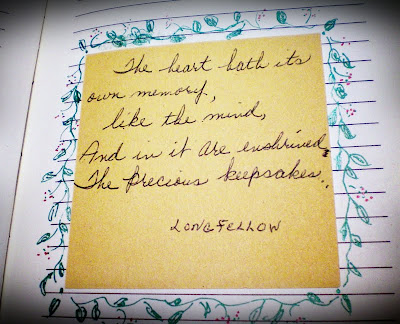 The heart hath its
own memory,
like the mind,
And in it are enshrined
The Precious keepsakes.
LONGFELLOW